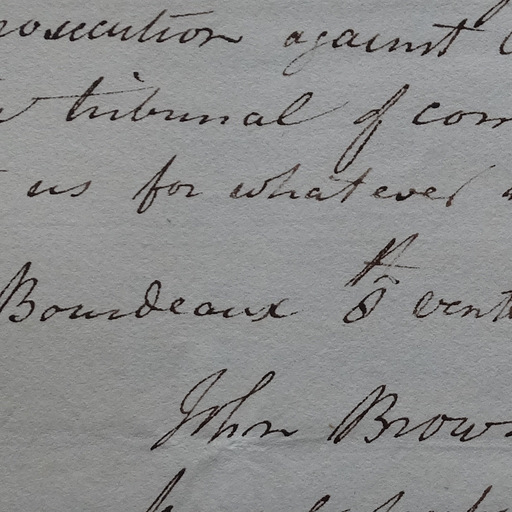 rosecution against
tribunal of com
us for whatever
Bourdeaux 8th vent
John Brow